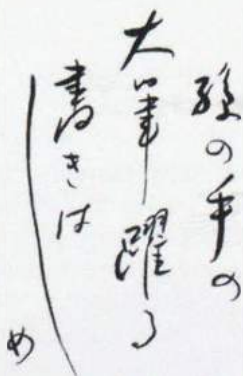 孫の手の
大筆躍る
書きはじ
め